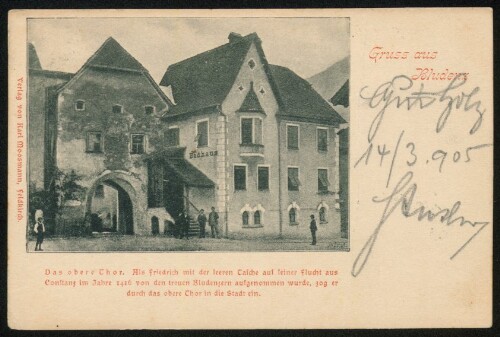 Gruss aus
Bludenz
Gut Holz
14/3. 905
Das obere Thor. Als Friedrich mit der leeren Tasche auf seiner Flucht aus
Constanz im Jahre 1416 von den treuen Bludenzern aufgenommen wurde, zog er
durch das obere Thor in die Stadt ein.
Verlag von Karl Moosmann, Feldkirch.